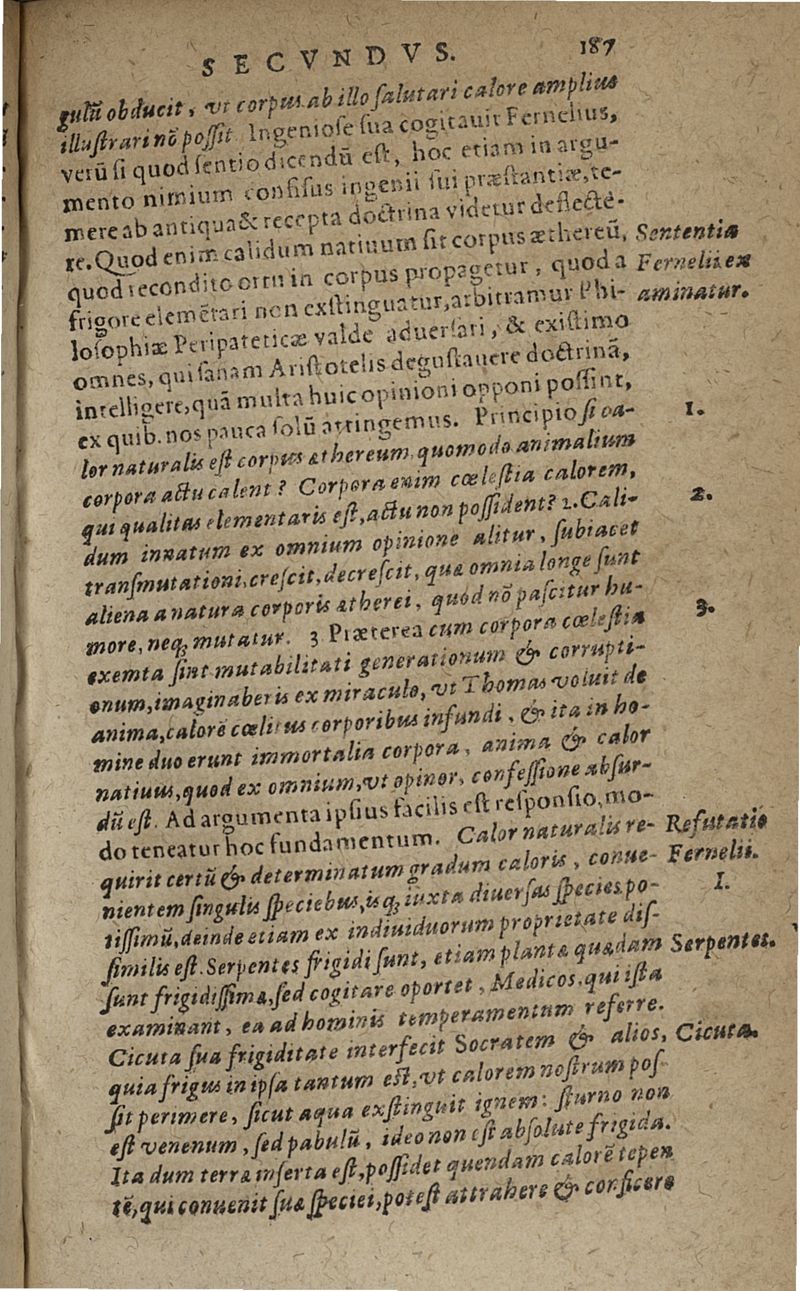 SECVNDVS. 187
gulũ obducit, vt corpus ab illo ſalutari calore amplius
illuſtrari nõ poſſit. Ingenioſe ſua cogitauit Fernelius,
verũ ſi quod ſentio dicendũ eſt, hoc etiam in argu-
mento nimium confiſus ingenii ſui præſtantiæ, te-
mere ab antiqua & recepta doctrina videtur deflecte-
re. Quod enim calidum natiuum ſit corpus æthereũ, Sententia
quod recondito ortu in corpus propagetur, quod a Fernelii ex
frigore elemẽtari non exſtinguatur, arbitramur Phi- aminatur.
loſophiæ Peripateticæ valde aduerſari, & exiſtimo
omnes, qui ſanam Ariſtotelis deguſtauere doctrinã,
intelligere, quã multa huic opinioni opponi poſſint,
ex quib. nos pauca ſolũ attingemus. Principio ſi ca- 1.
lor naturalis eſt corpus æthereum, quomodo animalium
corpora actu calent? Corpora enim cœleſtia calorem,
qui qualitas elementaris eſt, actu non poſſident? 2. Cali- 2.
dum innatum ex omnium opinione alitur, ſubiacet
tranſmutationi, creſcit, decreſcit, quæ omnia longe ſunt
aliena a natura corporis ætherei, quod nõ paſcitur hu-
more, neq; mutatur. 3 Præterea cum corpora cœleſtia 3.
exemta ſint mutabilitati generationum & corrupti-
onum, imaginaberis ex miraculo, vt Thomas voluit de
anima, calorẽ cœlitus corporibus infundi, & ita in ho-
mine duo erunt immortalia corpora, anima & calor
natiuus, quod ex omnium, vt opinor, confeſſione abſur-
dũ eſt. Ad argumenta ipſius facilis eſt reſponſio, mo-
do teneatur hoc fundamentum. Calor naturalis re- Refutatio
quirit certũ & determinatum gradum caloris, conue- Fernelii.
nientem ſingulis ſpeciebus, is q; iuxta diuerſas ſpecies po- I.
tiſſimũ, deinde etiam ex indiuiduorum proprietate diſ-
ſimilis eſt. Serpentes frigidi ſunt, etiam plantæ quædam Serpentes.
ſunt frigidiſſimæ, ſed cogitare oportet, Medicos, qui iſta
examinant, ea ad hominis temperamentum referre.
Cicuta ſua frigiditate interfecit Socratem & alios, Cicuta.
quia frigus in ipſa tantum eſt, vt calorem noſtrum poſ
ſit perimere, ſicut aqua exſtinguit ignem: ſturno non
eſt venenum, ſed pabulũ, ideo non eſt abſolute frigida.
Ita dum terræ inſerta eſt, poſſidet quendam calorẽ tepen
tẽ, qui conuenit ſuæ ſpeciei, poteſt attrahere & conficere